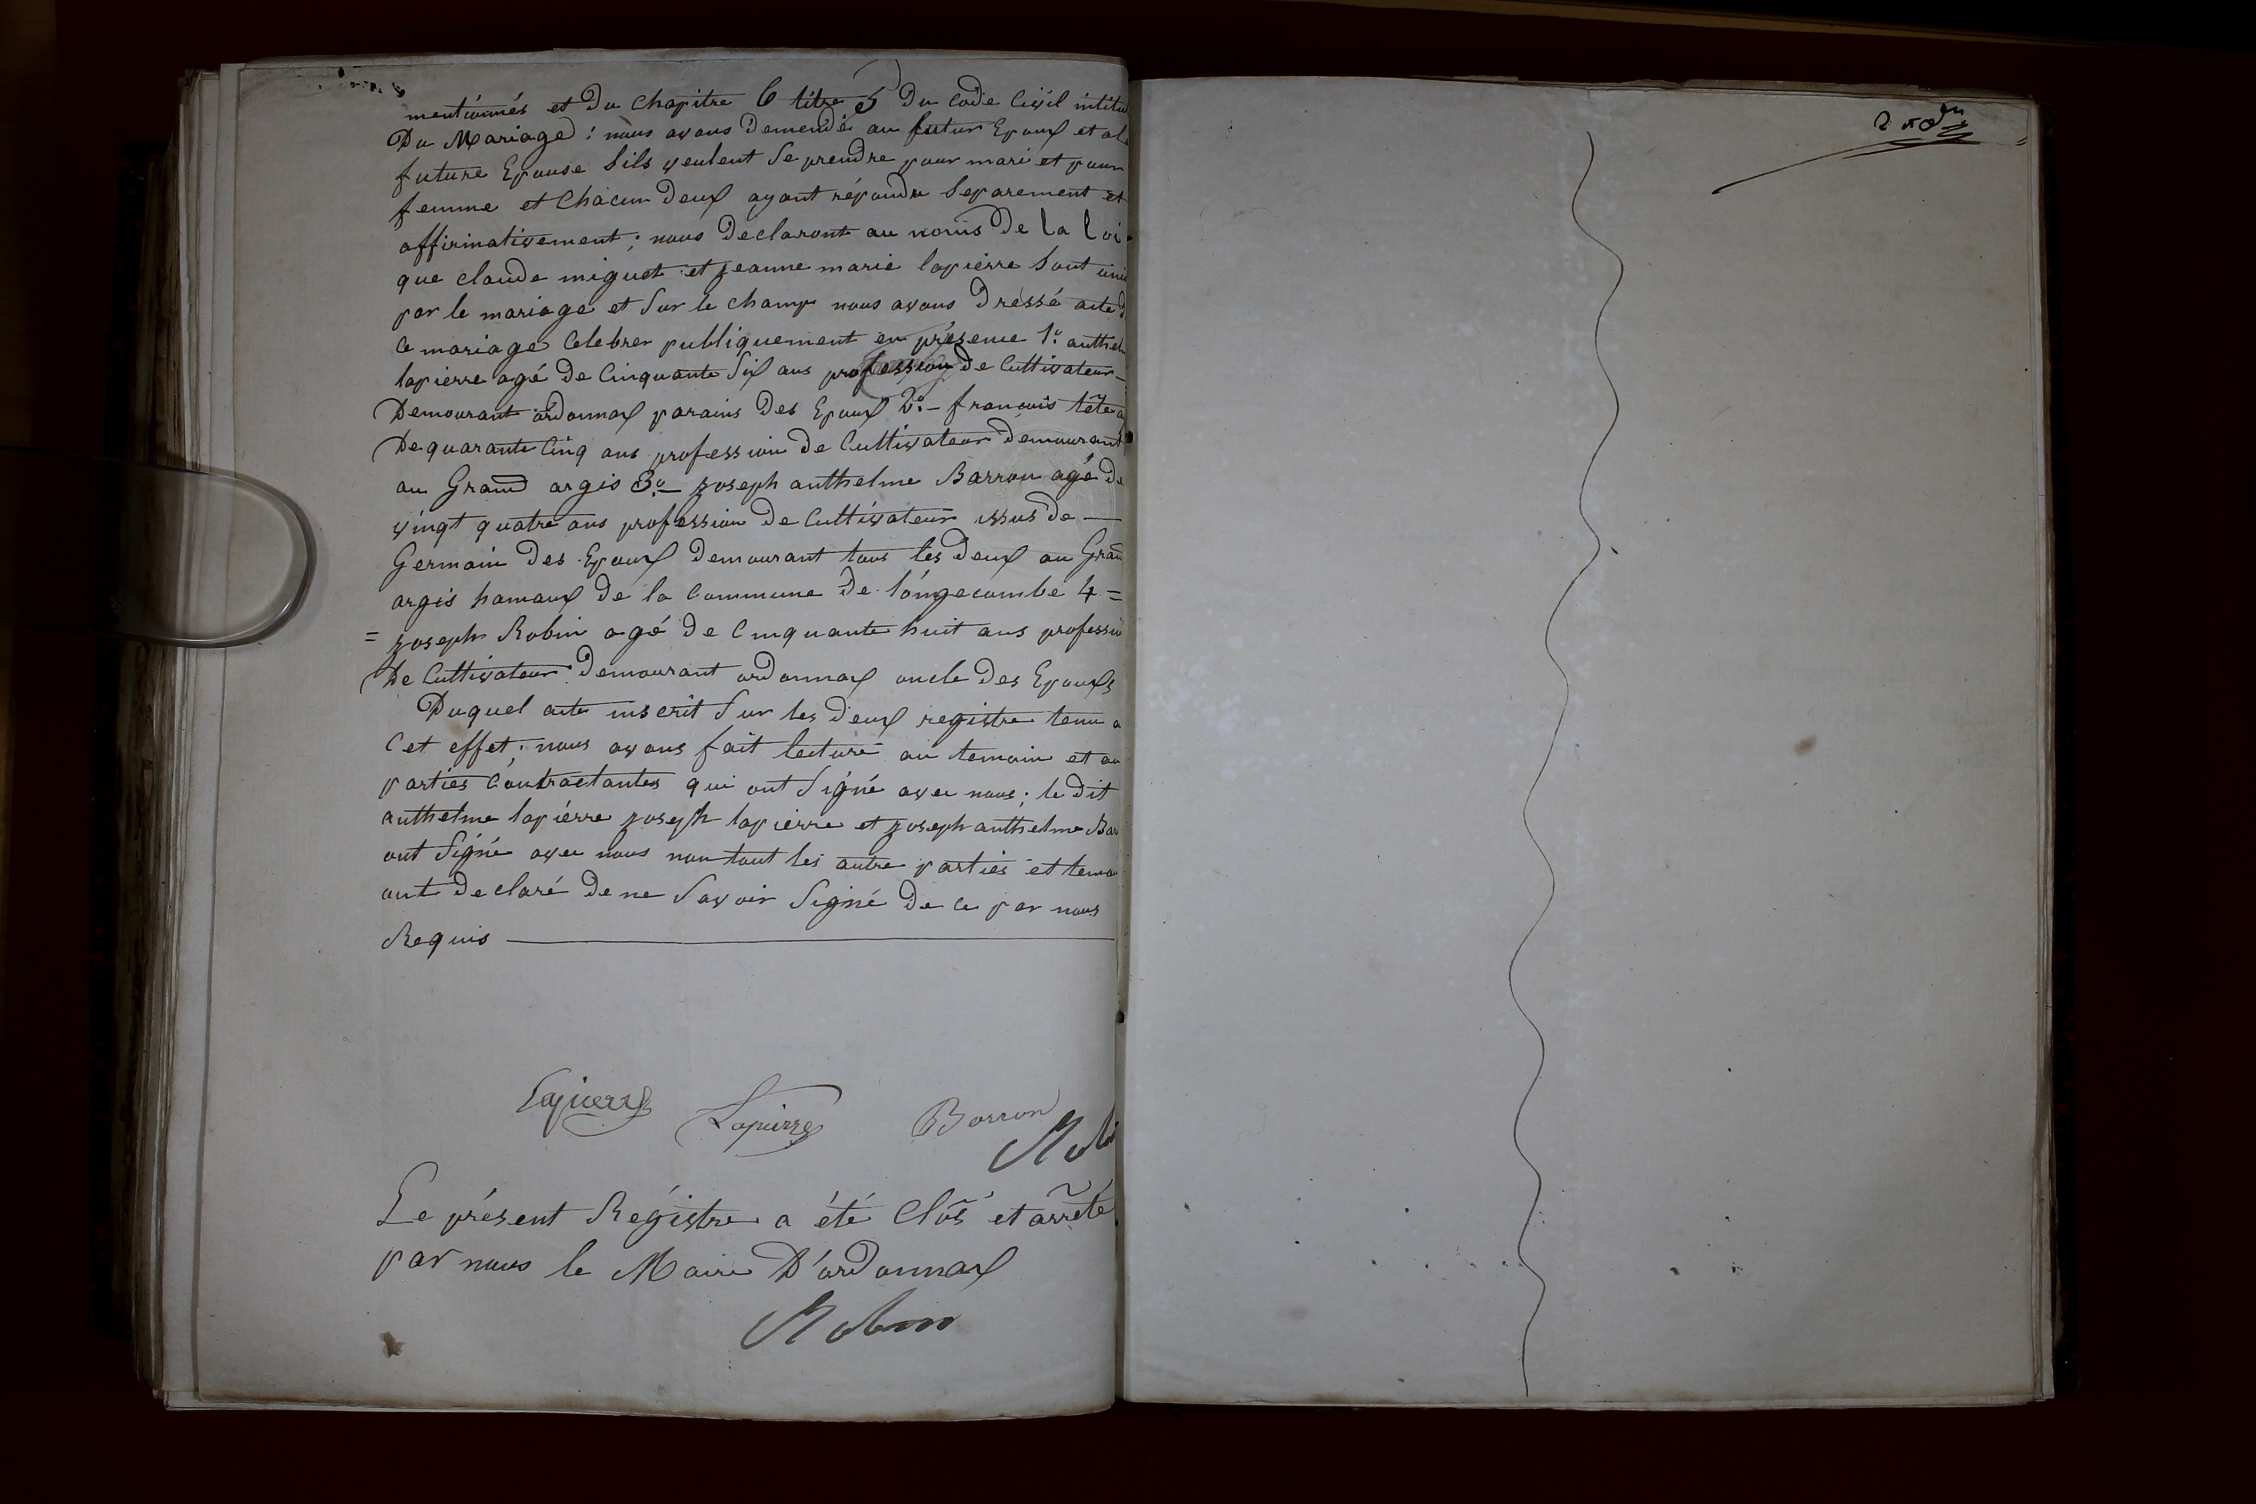 mentionnés et Du Chapitre 6 titre 5 Du Code Civil intitu
Du Mariage : nous avons Demendé au futur Epoux et a la
future Epouse Sils veulent Se prendre pour mari et pour
femme et Chacun Deux ayant répondu Separement et
affirmativement ; nous Declaront au noms De la loi
que claude miguet et jeanne marie lapierre Sont unis
par le mariage et Sur le champ nous avons Dressé acte d
ce mariage Celebrer publiquement en présence 1º anthel
lapierre agé De Cinquante Six ans profession De Cultivateur
Demourant ordonnax parains Des Epoux 2º françois tête a
De quarante Cinq ans profession De Cultivateur Demourant
au Grand argis 3º joseph anthelme Barron agé De
vingt quatre ans profession De Cultivateur issus De
Germain Des Epoux Demourant tous les Deux au Gran
argis hamaux De la Commune De longecombe 4 =
= joseph Robin agé De Cinquante huit ans professio
De Cultivateur Demourant ordonnax oncle Des Epouxs
Duquel acte inscrit Sur les Deux registre tenu a
Cet effet ; nous avons fait lecture au temoin et au
parties Contractantes qui ont Signé avec nous ; le Dit
anthelme lapierre joseph lapierre et joseph anthelme Bar
ont Signé avec nous non tout les autre parties et temo
ont Declaré De ne Savoir Signé De ce par nous
Requis
Lapierre Lapierre Borron
Robi
Le présent Régistre a été Clos et arrêté
par nous le Maire D'ordonnax
Robin